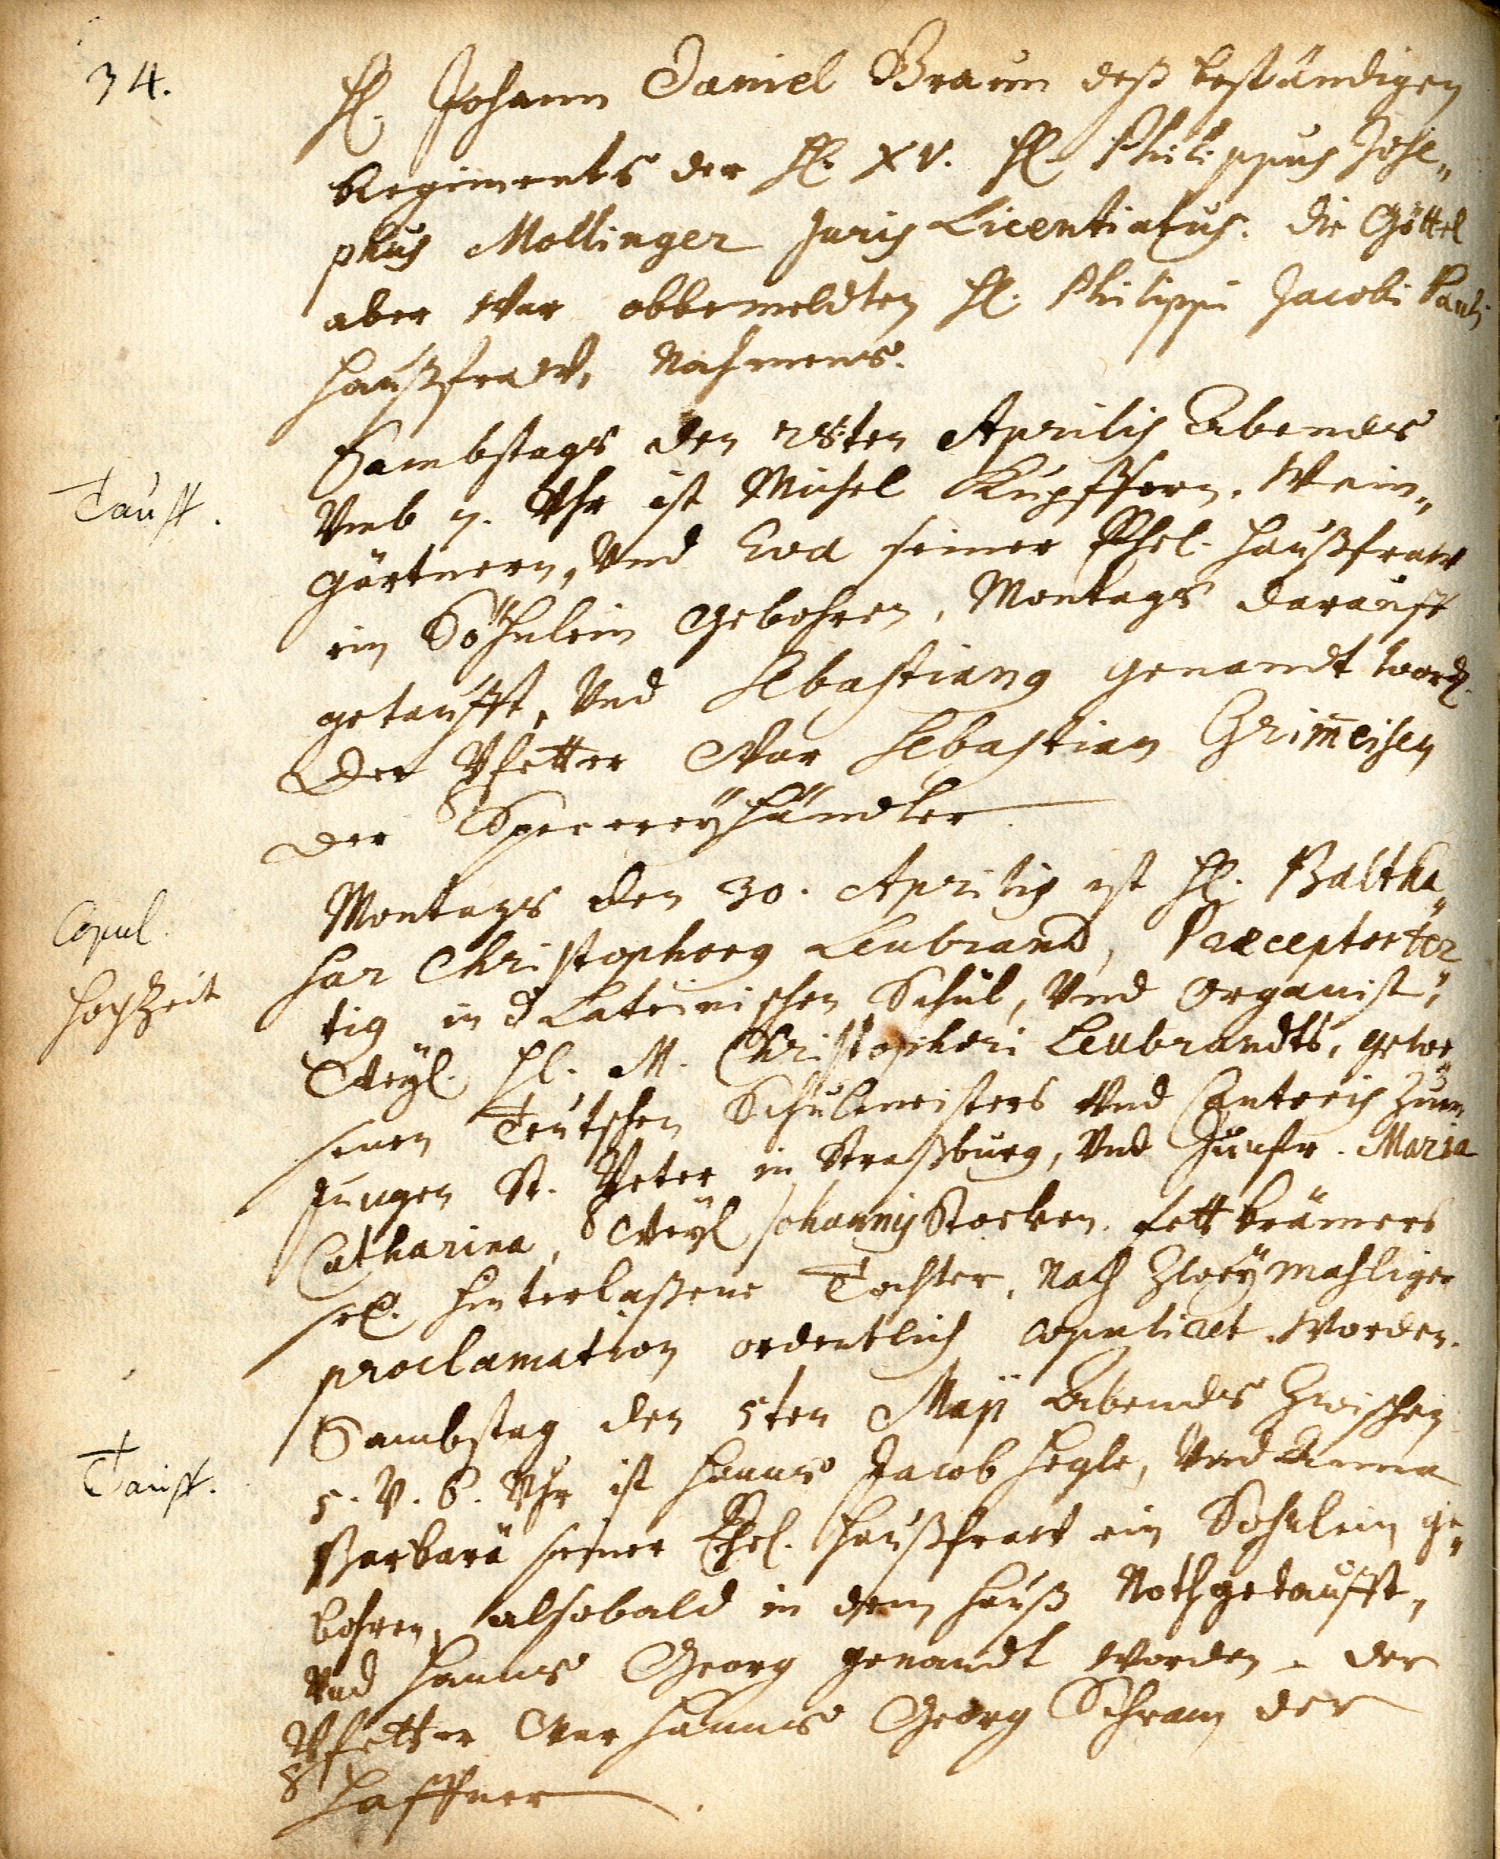 34.
H. Johann Daniel Braun deß beständigen
Regiments der H. XV. H. Philippus Jose„
phus Mollinger Juris Licentiatus. die Göttel
aber war obbemeldten H. Philippi Jacobi Pauli
Haußfraw, Nahmens.
Tauff.
Sambstags den 28ten Aprilis Abends
Vmb 7. Vhr ist Michel Kupffern, Wein„
gärtnern, Vnd Eva seiner Ehel. Haußfraw
ein Söhnlein gebohren, Montags darauff
getaufft, Vnd Sebastianus genandt word.
Der Pfetter war Sebastian Grim̄eisen
der Specereyhändler
Copul.
Hochzeit
Montags den 30. Aprilis ist H. Baltha„
sar Christophorus Leubrand, Præceptor
tig in d Lateinischen Schul, Vnd Organist,
Weyl. H. M. Christophori Leubrandts, gewe„
senen Teutschen Schulmeisters Vnd Cantoris Zum
Jungen St. Peter in Straßburg, Vnd Junfr. Maria
Catharina, Weyl Johannis Storken, fettkrämers
sel. hinterlaßene Tochter, Nach Zweymahliger
proclamation ordentlich copuliret worden.
Tauff.
Sambstag den 5ten Maji Abends Zwischen
5. V. 6. Vhr ist Hanns Jacob Hegle, Vnd Anna
Barbara seiner Ehel. Haußfraw ein Söhnlein ge„
bohren, alsobald in dem Hauß Nothgetaufft,
Vnd Hanns Georg genandt worden. der
Pfetter war Hanns Georg Schram der
Haffner